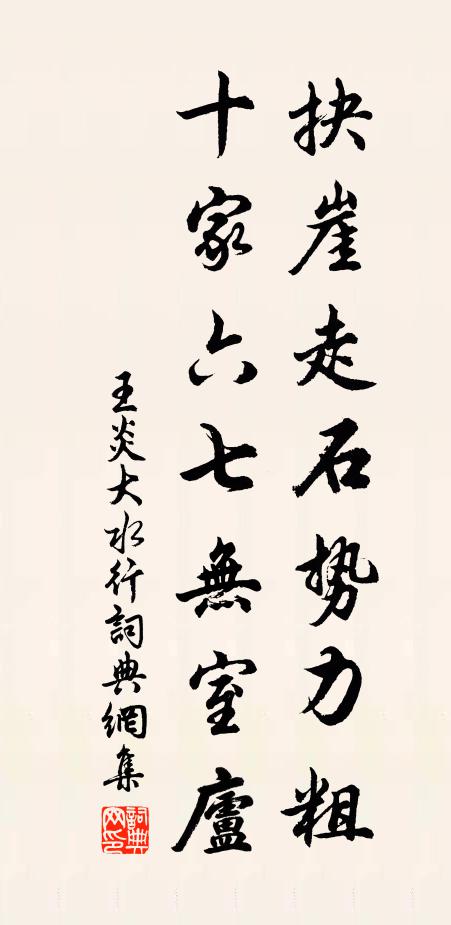 抉崖走石势力粗
十家六七無室廬
王炎大水行詞典網集
詞典網印